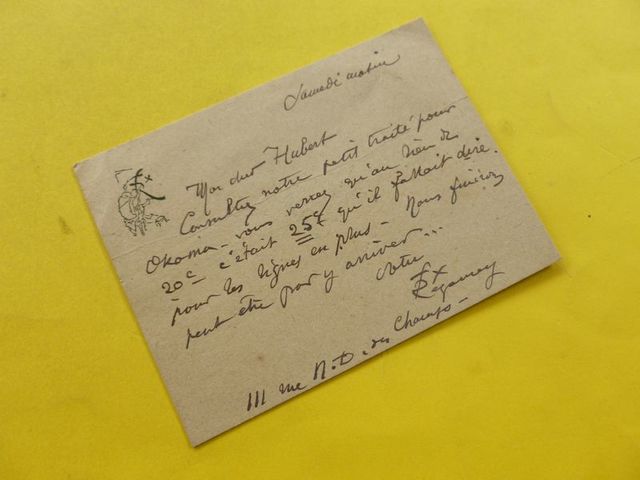 Samedi matin
Mon cher Hubert
Consultez notre petit traité pour
Okoma - vous verrez qu'au lieu de
20c c'était 25c qu'il fallait dire.
pour les lignes en plus - Nous finirons
peut être par y arriver...
Votre
F Régamey
111 rue N.D. des Champs -